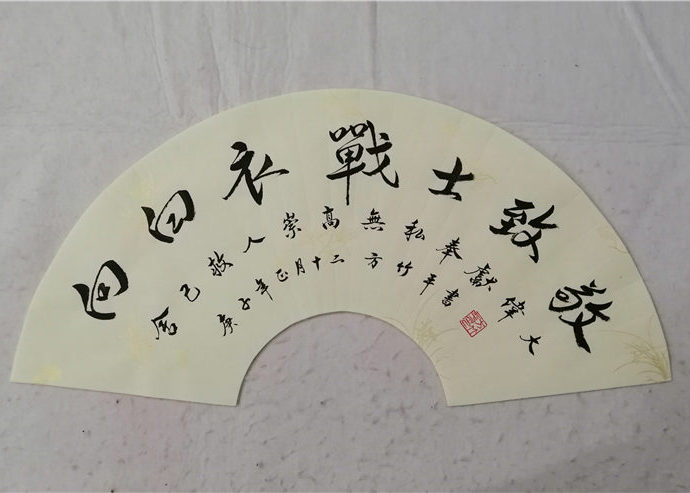 向白衣戰士致敬
舍己救人崇高無私奉獻偉大
庚子年正月十二方竹平書